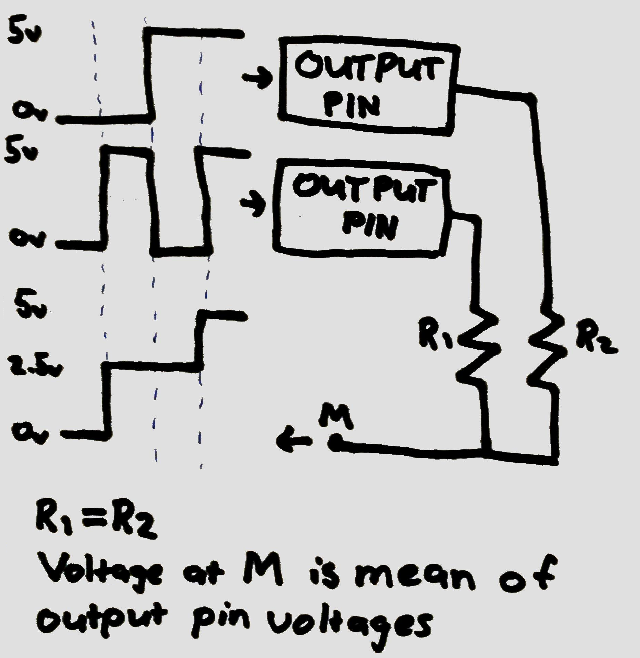 5v
OUTPUT
PIN
0v
5v
OUTPUT
PIN
0v
5v
R1
R2
2.5v
M
0v
R1=R2
Voltage at M is mean of
output pin voltages